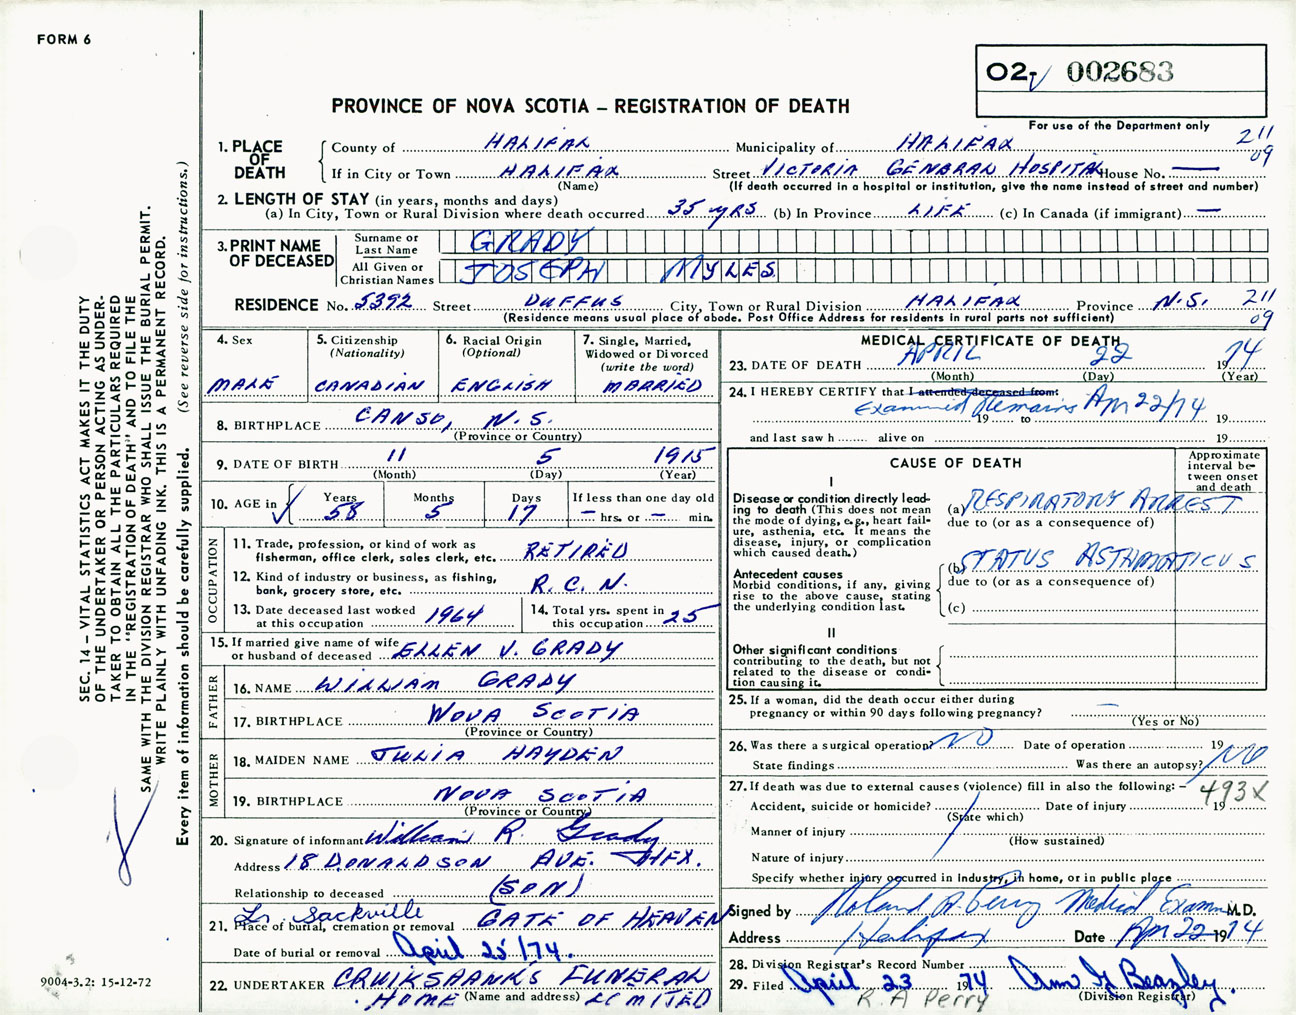 FORM 6
O2- 002683
For use of the Department only
PROVINCE OF NOVA SCOTIA – REGISTRATION OF DEATH
SEC. 14 – VITAL STATISTICS ACT MAKES IT THE DUTY
OF THE UNDERTAKER OR PERSON ACTING AS UNDER-
TAKER TO OBTAIN ALL THE PARTICULARS REQUIRED
IN THE "REGISTRATION OF DEATH" AND TO FILE THE
SAME WITH THE DIVISION REGISTRAR WHO SHALL ISSUE THE BURIAL PERMIT.
WRITE PLAINLY WITH UNFADING INK. THIS IS A PERMANENT RECORD.
Every item of information should be carefully supplied. (See reverse side for instructions.)
1. PLACE OF DEATH County of HALIFAX Municipality of HALIFAX 211
If in City or Town HALIFAX Street VICTORIA GENERAL HOSPITAL House No. — 09
(Name) (If death occurred in a hospital or institution, give the name instead of street and number)
2. LENGTH OF STAY (in years, months and days)
(a) In City, Town or Rural Division where death occurred 35 YRS (b) In Province LIFE (c) In Canada (if immigrant) —
3. PRINT NAME OF DECEASED Surname or Last Name GRADY
All Given or Christian Names JOSEPH MYLES
RESIDENCE No. 5392 Street DUFFUS City, Town or Rural Division HALIFAX Province N.S. 211
(Residence means usual place of abode. Post Office Address for residents in rural parts not sufficient) 09
4. Sex
MALE
5. Citizenship
(Nationality)
CANADIAN
6. Racial Origin
(Optional)
ENGLISH
7. Single, Married,
Widowed or Divorced
(write the word)
MARRIED
8. BIRTHPLACE CANSO, N.S.
(Province or Country)
9. DATE OF BIRTH 11 5 1915
(Month) (Day) (Year)
10. AGE in Years Months Days If less than one day old
58 5 17 – hrs. or – min.
OCCUPATION
11. Trade, profession, or kind of work as
fisherman, office clerk, sales clerk, etc. RETIRED
12. Kind of industry or business, as fishing,
bank, grocery store, etc. R.C.N.
13. Date deceased last worked
at this occupation 1964
14. Total yrs. spent in
this occupation 25
15. If married give name of wife
or husband of deceased ELLEN V. GRADY
FATHER
16. NAME WILLIAM GRADY
17. BIRTHPLACE NOVA SCOTIA
(Province or Country)
MOTHER
18. MAIDEN NAME JULIA HAYDEN
19. BIRTHPLACE NOVA SCOTIA
(Province or Country)
20. Signature of informant William R. Grady
Address 18 DONALDSON AVE. HFX.
Relationship to deceased (SON)
Lr. Sackville
21. Place of burial, cremation or removal GATE OF HEAVEN
Date of burial or removal April 25/74.
22. UNDERTAKER CRUIKSHANK'S FUNERAL
HOME (Name and address) LIMITED
9004-3.2: 15-12-72
MEDICAL CERTIFICATE OF DEATH
23. DATE OF DEATH APRIL 22 1974
(Month) (Day) (Year)
24. I HEREBY CERTIFY that I attended deceased from:
Examined Remains Apr 22/74
19 to 19
and last saw h alive on 19
CAUSE OF DEATH
Approximate
interval be-
tween onset
and death
I
Disease or condition directly lead-
ing to death (This does not mean
the mode of dying, e.g., heart fail-
ure, asthenia, etc. It means the
disease, injury, or complication
which caused death.)
(a) RESPIRATORY ARREST
due to (or as a consequence of)
Antecedent causes
Morbid conditions, if any, giving
rise to the above cause, stating
the underlying condition last.
(b) STATUS ASTHMATICUS
due to (or as a consequence of)
(c)
II
Other significant conditions
contributing to the death, but not
related to the disease or condi-
tion causing it.
25. If a woman, did the death occur either during
pregnancy or within 90 days following pregnancy? —
(Yes or No)
26. Was there a surgical operation? NO Date of operation 19
State findings Was there an autopsy? NO
27. If death was due to external causes (violence) fill in also the following: –
493X
Accident, suicide or homicide? Date of injury 19
(State which)
Manner of injury
(How sustained)
Nature of injury
Specify whether injury occurred in industry, in home, or in public place
Signed by Roland A. Perry Medical Examiner M.D.
Address Halifax Date Apr 22 1974
28. Division Registrar's Record Number
29. Filed April 23 1974 Ann G Beazley.
R. A Perry (Division Registrar)